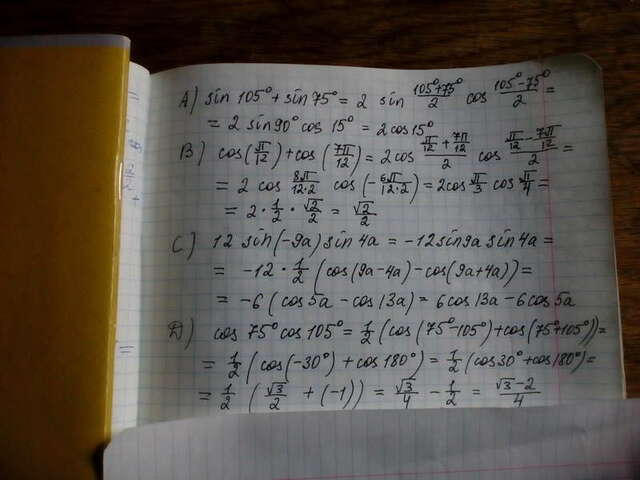 A) sin 105° + sin 75° = 2 sin (105°+75°)/2 cos (105°-75°)/2 =
= 2 sin 90° cos 15° = 2 cos 15°
B) cos(π/12) + cos(7π/12) = 2 cos (π/12 + 7π/12)/2 cos (π/12 - 7π/12)/2 =
= 2 cos 8π/12·2 cos(-6π/12·2) = 2 cos π/3 cos π/4 =
= 2 · 1/2 · √2/2 = √2/2
C) 12 sin(-9a) sin 4a = -12 sin 9a sin 4a =
= -12 · 1/2 (cos(9a-4a) - cos(9a+4a)) =
= -6 (cos 5a - cos 13a) = 6 cos 13a - 6 cos 5a
D) cos 75° cos 105° = 1/2 (cos (75°-105°) + cos(75°+105°)) =
= 1/2 (cos(-30°) + cos 180°) = 1/2 (cos 30° + cos 180°) =
= 1/2 (√3/2 + (-1)) = √3/4 - 1/2 = √3-2/4